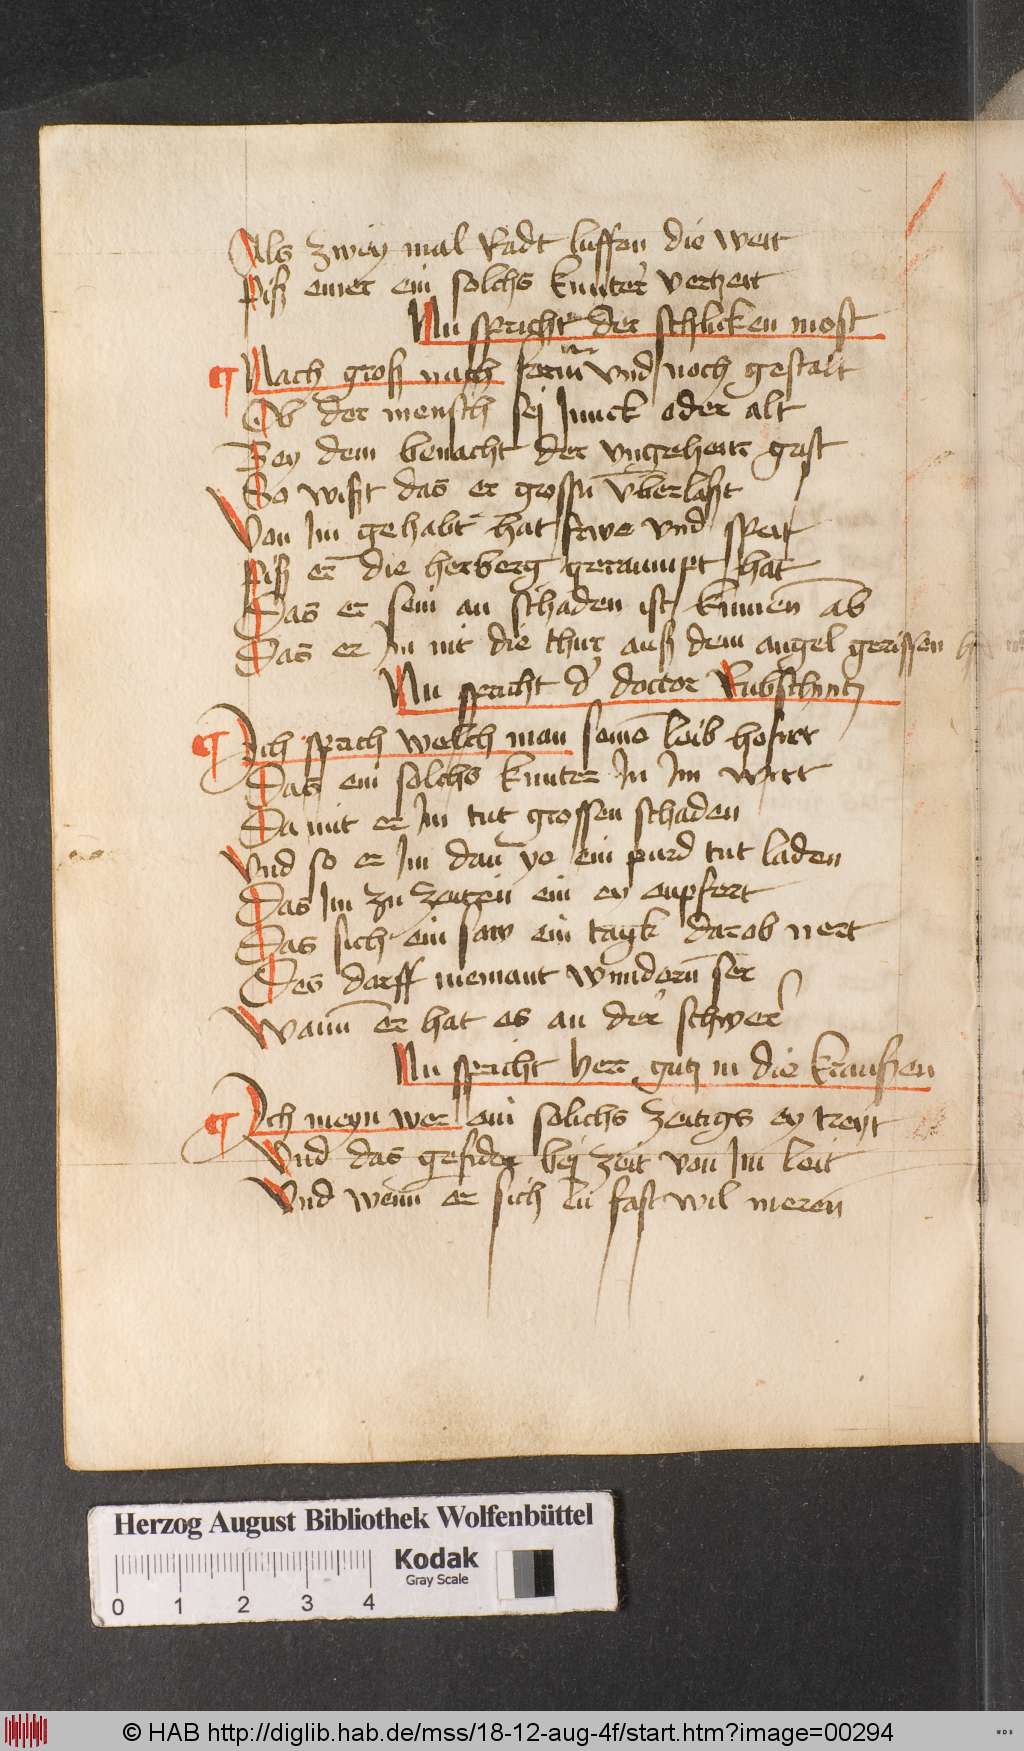 Als zwiy mal Radt luffen die weit
Piß einer ein solchs kunter vertzeit
Nu spricht der schlicken most
Nach groß nach form und noch gestalt
Ob der mensch sej Junck oder alt
Bey dem benacht der ungeheur gast
So wißt das er grossn uberlast
Von Jm gehabt hat frwe und speit
Piß er die herberg geraumpt hat
Das er sein an schaden ist kumen ab
Das er Jm nit die thur auß dem angel gerissen
Nu spricht d doctor Rubschintz
Ich sprich welch man seinē leib hofirt
Das ein solchs kunter Jn Jm wirt
Da mit er Jm tut grossen schaden
Und so er Jm dan yo ein purd tut laden
Das Jm zu zeiten ein ey enpfert
Das sich ein saw ein tagk darob nert
Des darff niemant wundern ser
Wann er hat es an der schwer
Nu spricht herr gutz in die krausen
Ich meyn wer ein solichs zeitigs ey treyt
Und das gefider bej zeit von Jm leit
Und wenn er sich zu fast wil meren
Herzog August Bibliothek Wolfenbüttel
Kodak
Gray Scale
0 1 2 3 4
© HAB http://diglib.hab.de/mss/18-12-aug-4f/start.htm?image=00294